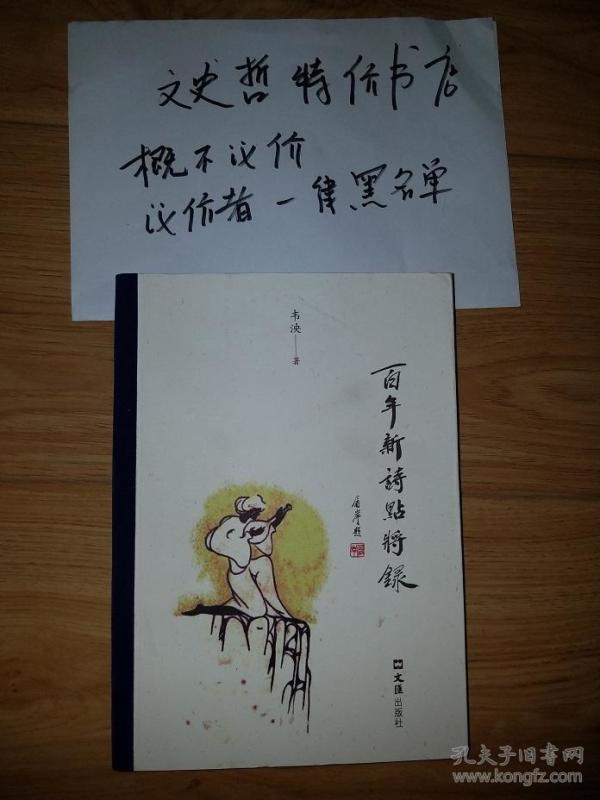 文史哲特价书店
概不议价
议价者一律黑名单
韦泱——著
百年新詩點將錄
文匯出版社
孔夫子旧书网
www.kongfz.com